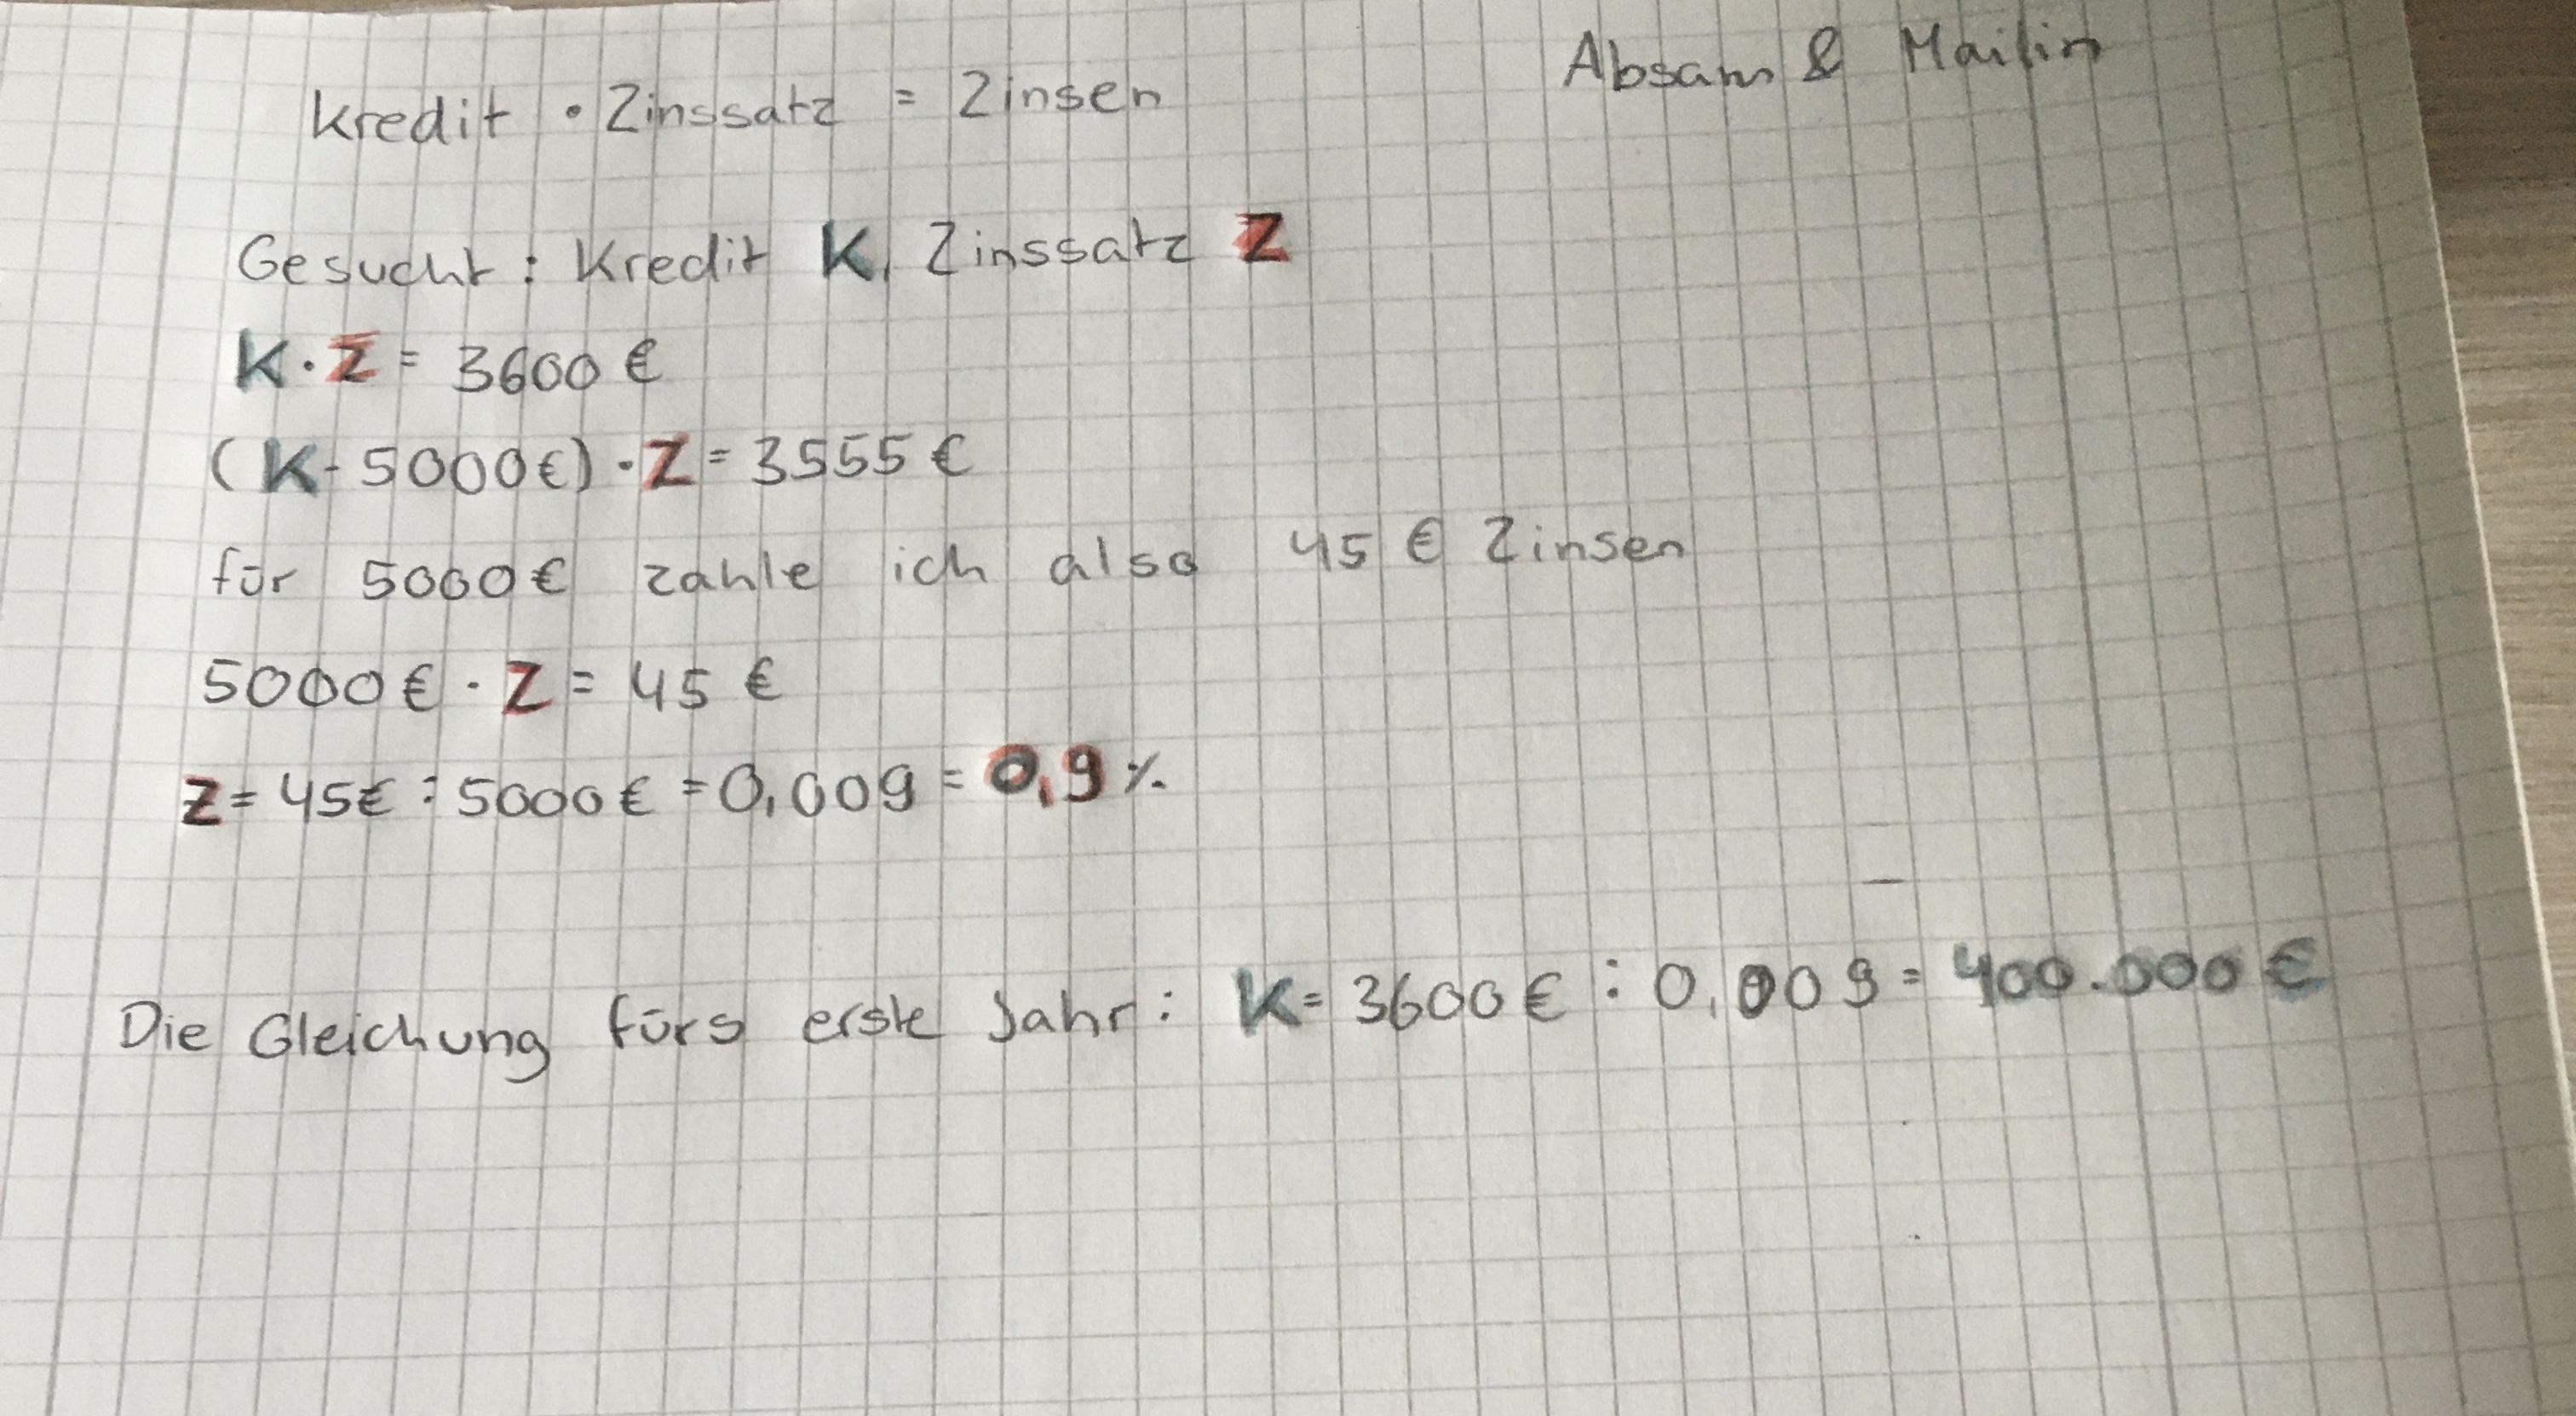 Absam & Mailin
Kredit · Zinssatz = Zinsen
Gesucht: Kredit K, Zinssatz Z
K · Z = 3600 €
(K - 5000€) · Z = 3555 €
für 5000€ zahle ich also 45 € Zinsen
5000€ · Z = 45 €
Z = 45€ : 5000€ = 0,009 = 0,9 %
Die Gleichung fürs erste Jahr: K = 3600€ : 0,009 = 400.000 €